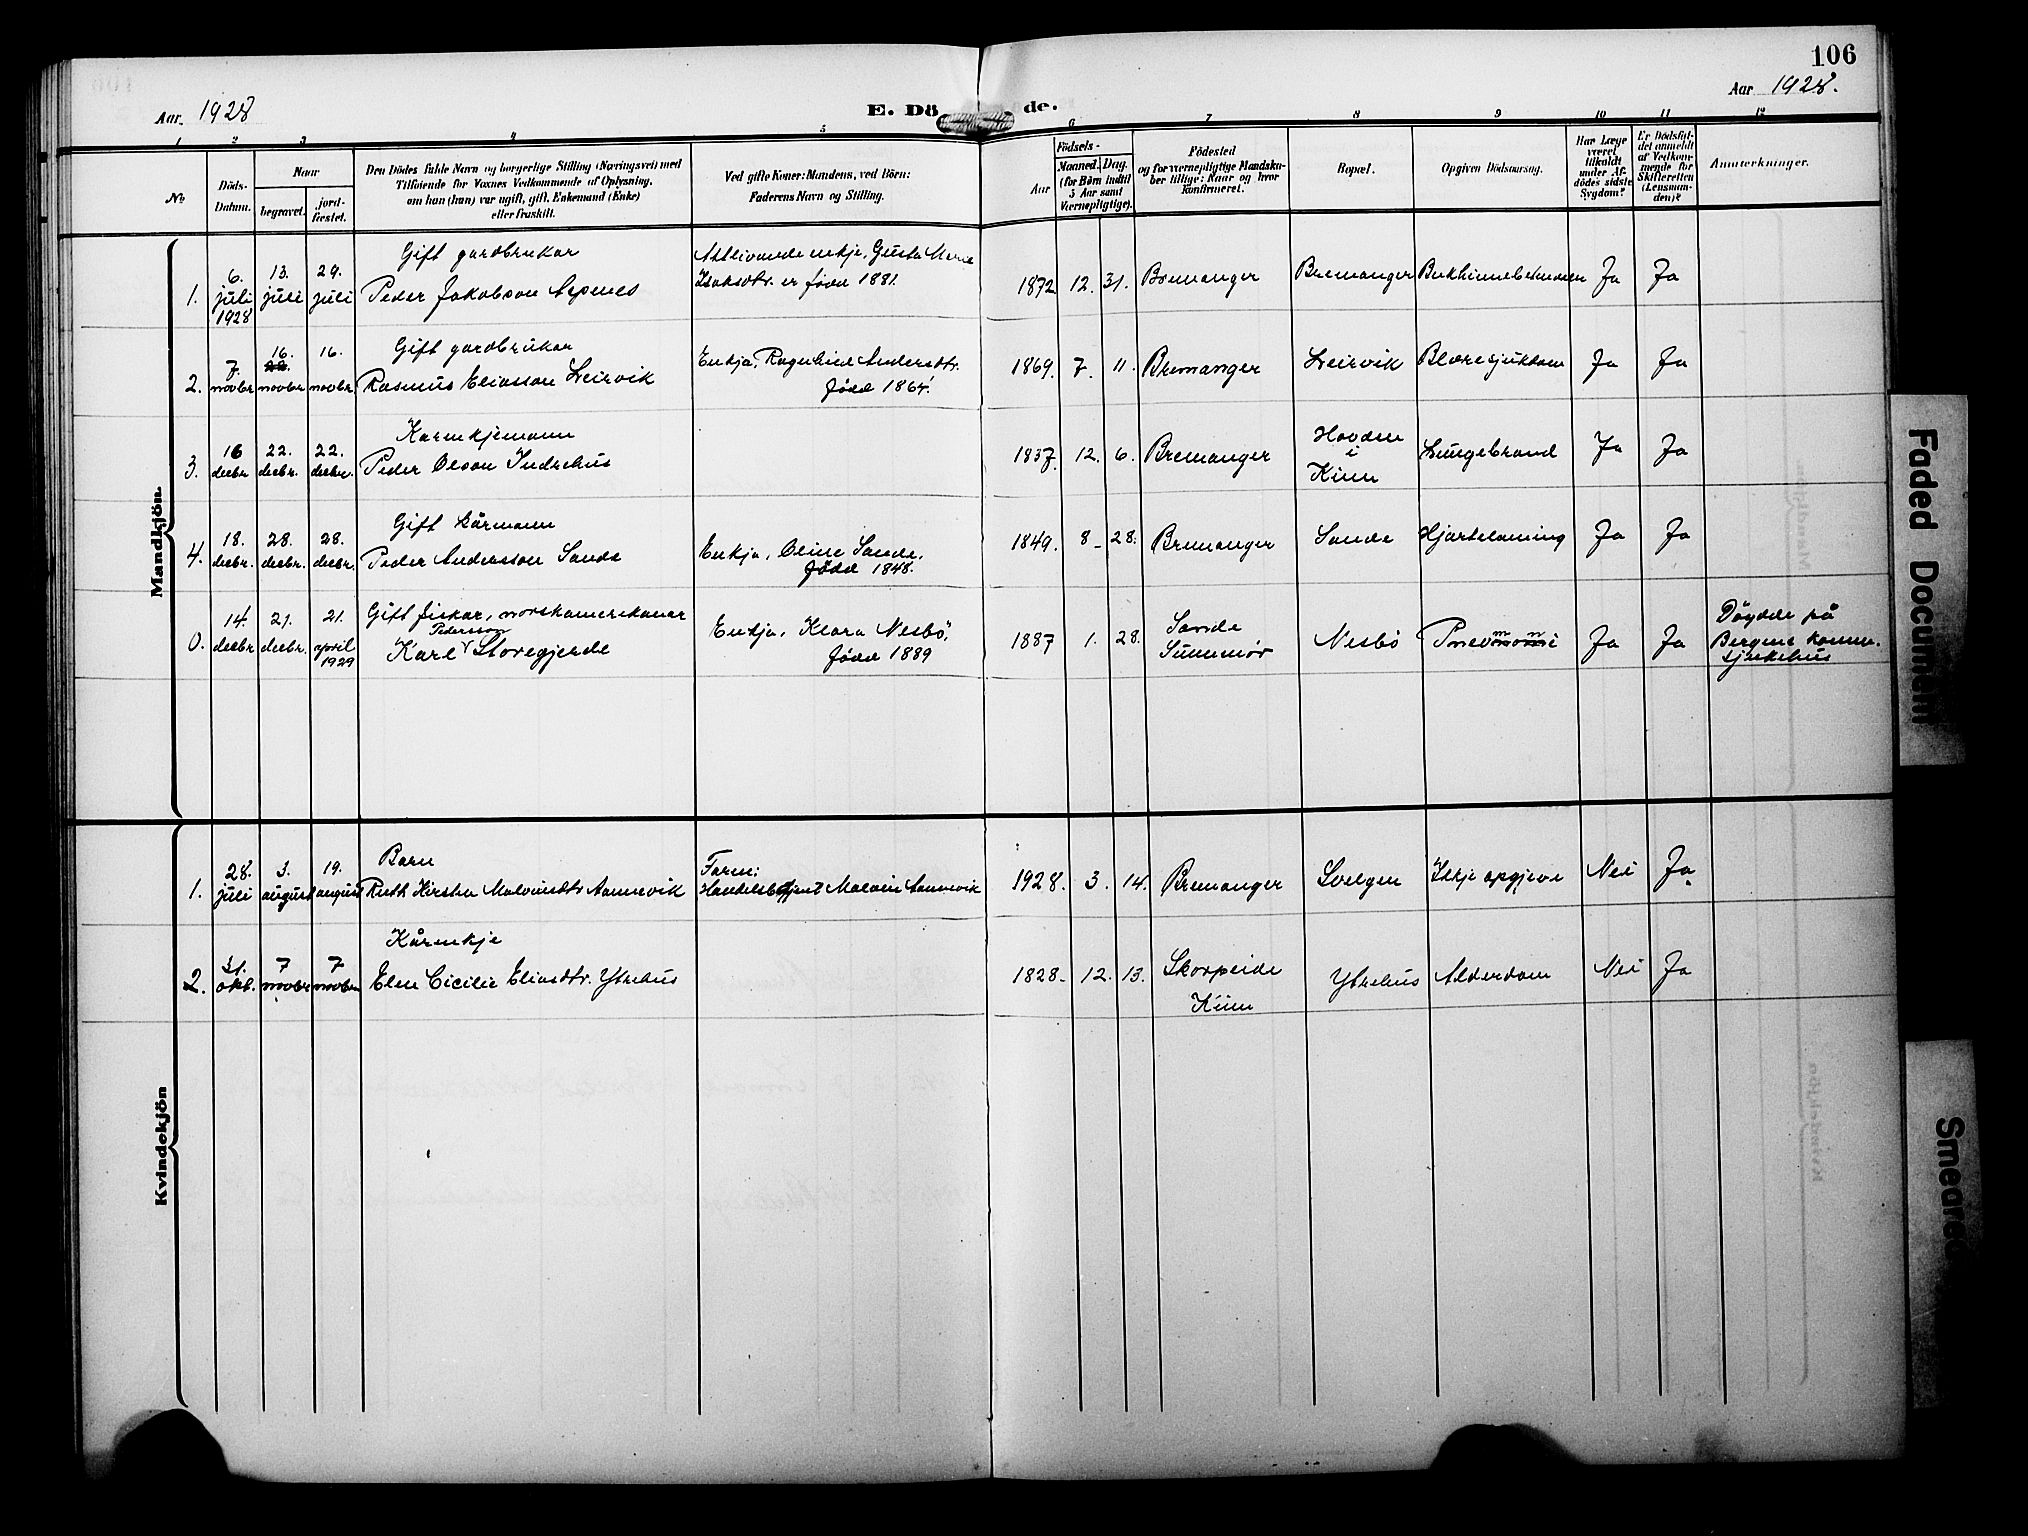 106
Aar 1928
E. Dö de.
Aar 1928.
1 2 3 4 5 6 7 8 9 10 11 12
No
Döds-
Datum.
Naar
begravet.
jord-
fæstet.
Den Dödes fulde Navn og borgerlige Stilling (Næringsvei) med
Tilföiende for Voxnes Vedkommende af Oplysning,
om han (hun) var ugift, gift, Enkemand (Enke)
eller fraskilt.
Ved gifte Koner: Mandens, ved Börn:
Faderens Navn og Stilling.
Födsels-
Aar
Maaned. Dag.
(for Börn indtil
5 Aar samt
Værnepligtige).
Födested
og for værnepligtige Mandsku-
ber tillige: Naar og hvor
konfirmeret.
Bopæl.
Opgiven Dödsaarsag.
Har Læge
været
tilkaldt
under Af-
dödes sidste
Sygdom?
Er Dödsfal-
det anmeldt
af Vedkom-
mende for
Skifteretten
(Lensman-
den)?
Anmærkninger.
Mandkjön.
1. 6. juli 1928 13. juli 29. juli
Gift gardbrukar
Peder Jakobson
Attlivande enkje, Gusta
er född 1881.
1872 12. 31. Bremanger Bremanger Ja Ja
2. 7. novbr 16. novbr 16. novbr.
Gift gardbrukar
Rasmus Eliasson Leirvik
Enkja, Ragnhild Andersdtr.
född 1864.
1869. 7. 11. Bremanger Leirvik Blæresjukdom Ja Ja
3. 16 decbr 22. decbr. 22. decbr.
Kårenkjemann
Peder Olson Indrehus
1837. 12. 6. Bremanger Hovden
i
Kinn
Lungebrand Ja Ja
4. 18. decbr. 28. decbr. 28. decbr.
Gift kårmann
Peder Andersson Sande
Enkja, Oline Sande,
född 1848.
1849. 8 - 28. Bremanger Sande Hjartelaming Ja Ja
0. 14. decbr 21. decbr. 21. april 1929
Gift fiskar, norskamerikanar
Pedersson
Karl Storegjerde
Enkja, Klara Nesbö,
född 1889
1887 1. 28. Sande
Sunnmör
Nesbö Pneomoni Ja Ja
Döydde på
Bergens komm.
sjukehus
Kvindekjön
1. 28. juli 3. august 19. august
Barn
Ruth Kirsten Malvinsdtr Aannevik
Faren:
Handelsbetjent Malvin Aannevik
1928. 3. 14. Bremanger Svelgen Ikkje opgjeve Nei Ja
2. 31. okt. 7 novbr 7 novbr
Kårenkje
Elen Cicilie Eliasdtr. Ytrehus
1828. 12. 13. Skorpeide
Kinn
Ytrehus Alderdom Nei Ja
Faded Document
Smeared